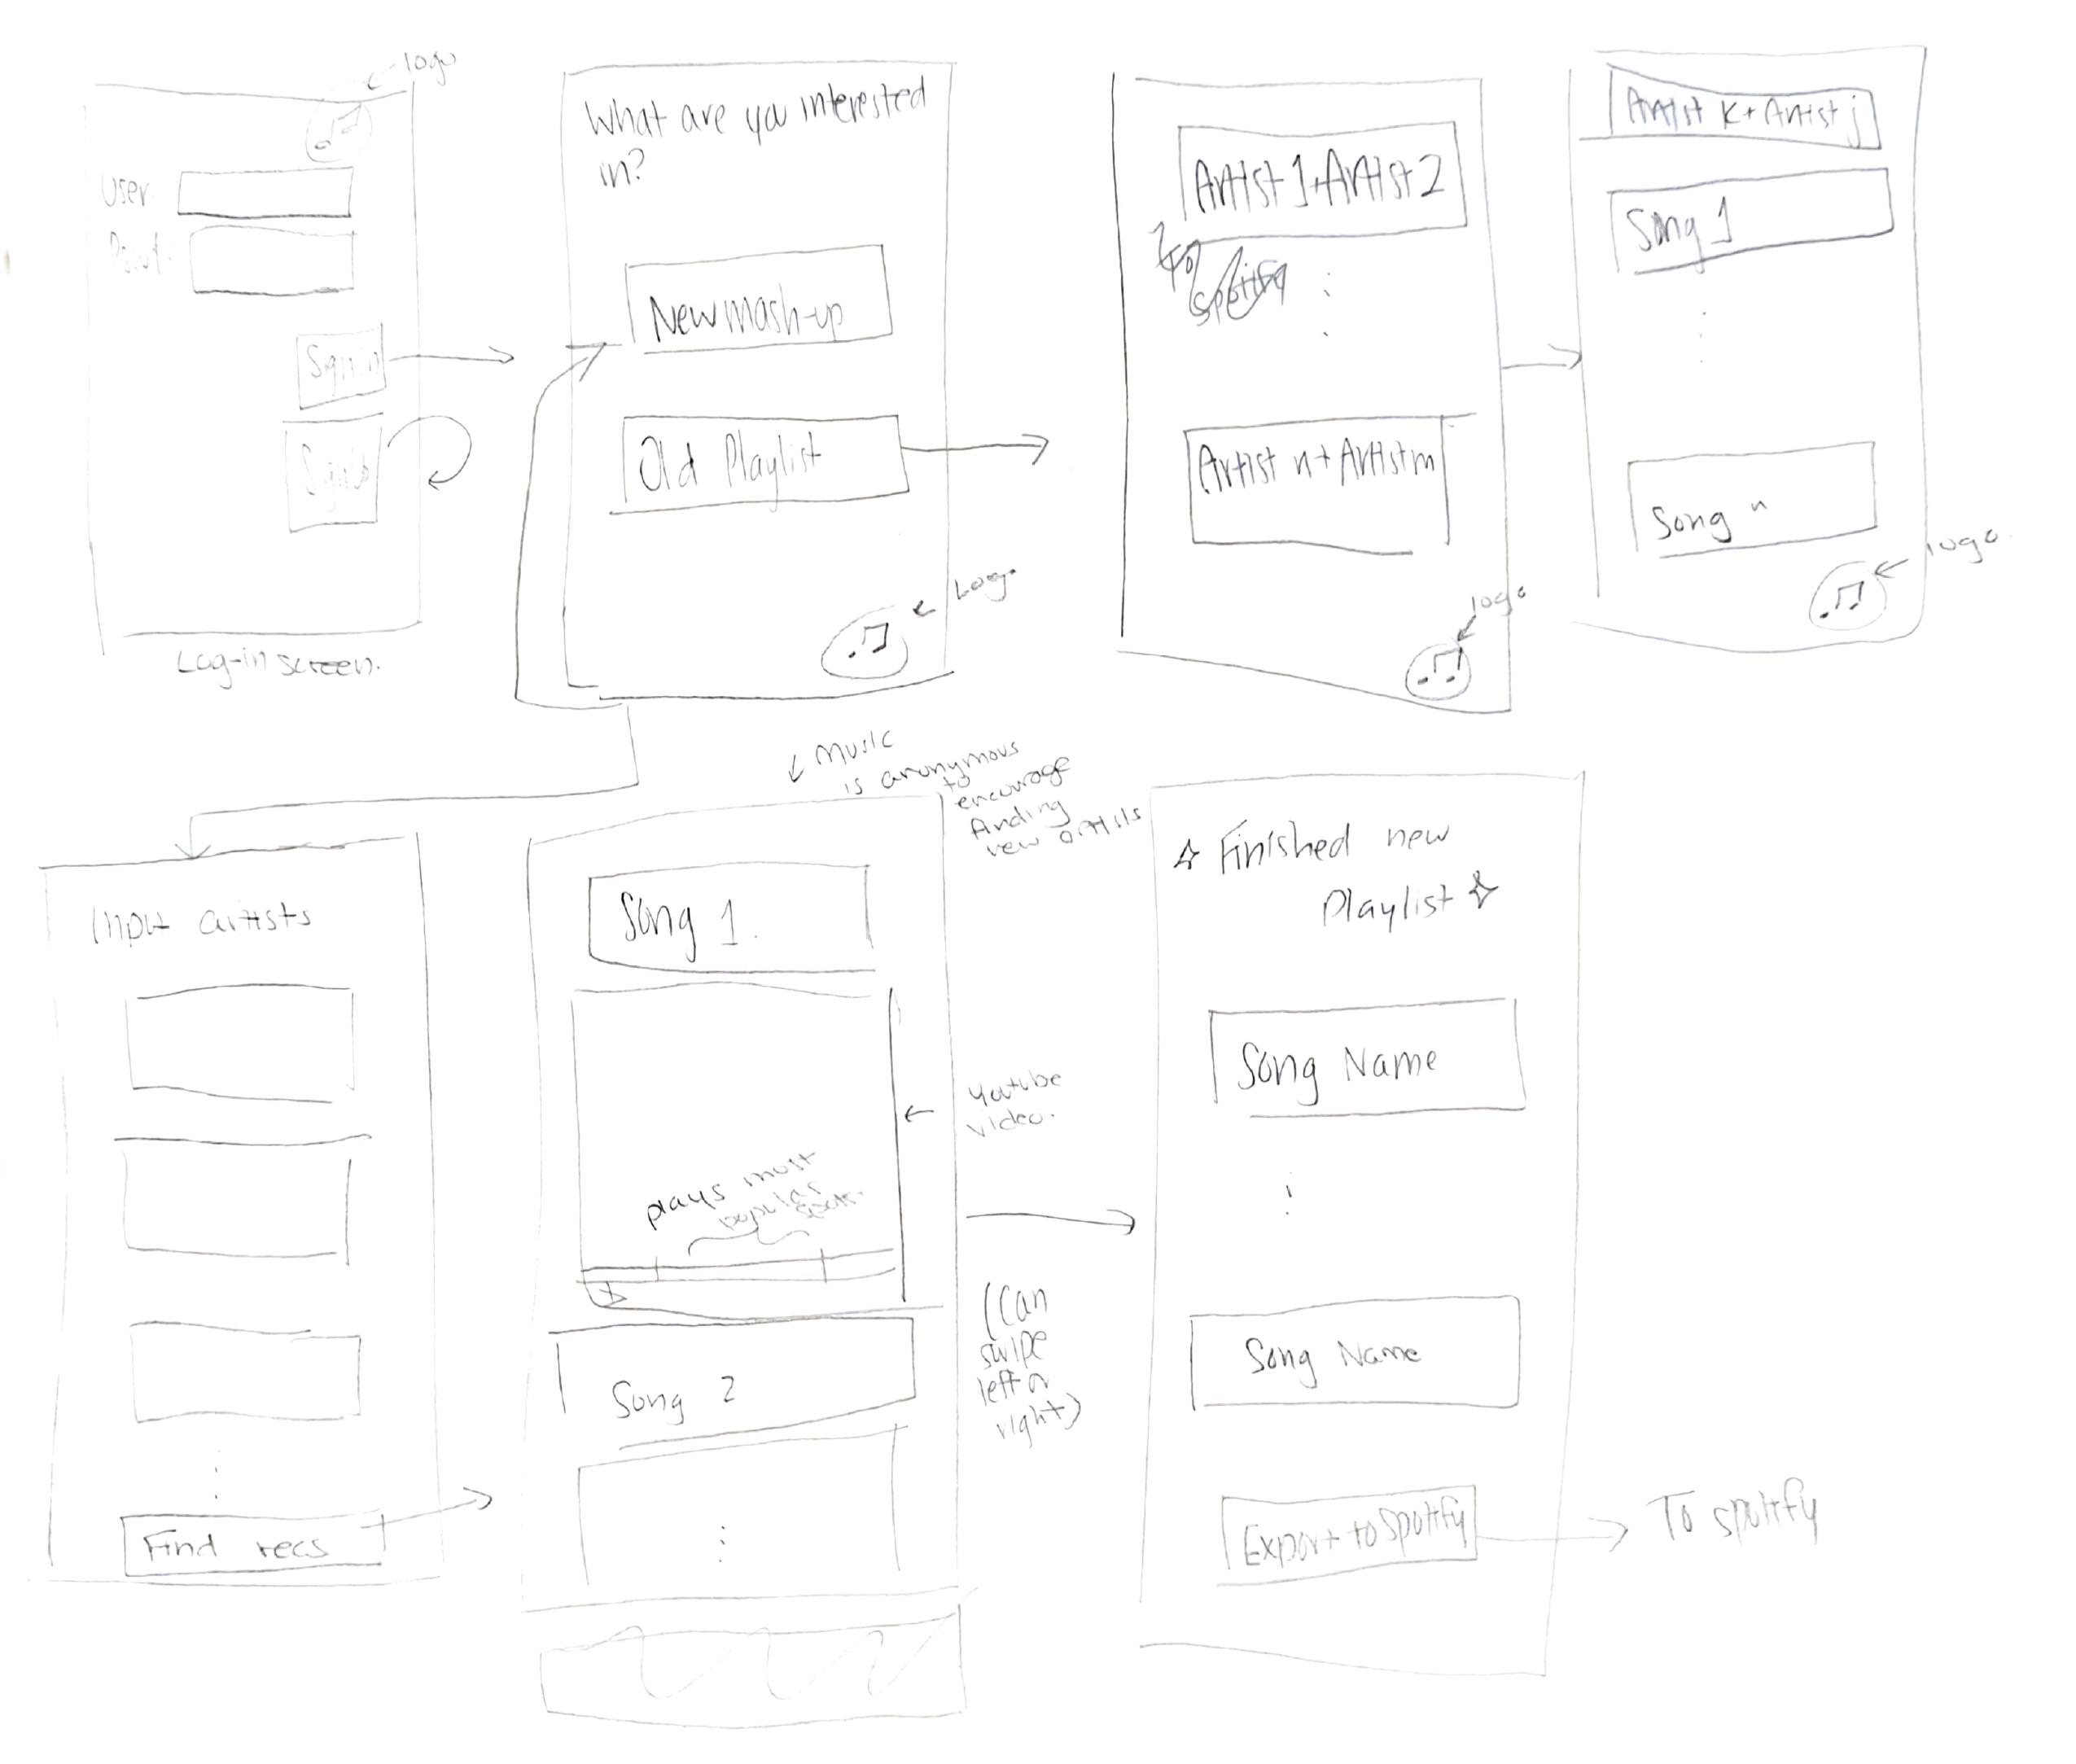 logo
User
Sign in
Log-in screen.
What are you interested
in?
New mash-up
Old Playlist
Logo
Artist 1 + Artist 2
to
spotify
Artist n + Artist m
logo
Artist K + Artist j
Song 1
Song n
logo
Input artists
Find recs
Music
is anonymous
to
encourage
finding
new artists
Song 1.
youtube
video.
plays most
popular
spots.
Song 2
(Can
swipe
left or
right)
Finished new
Playlist
Song Name
Song Name
Export to Spotify
To spotify